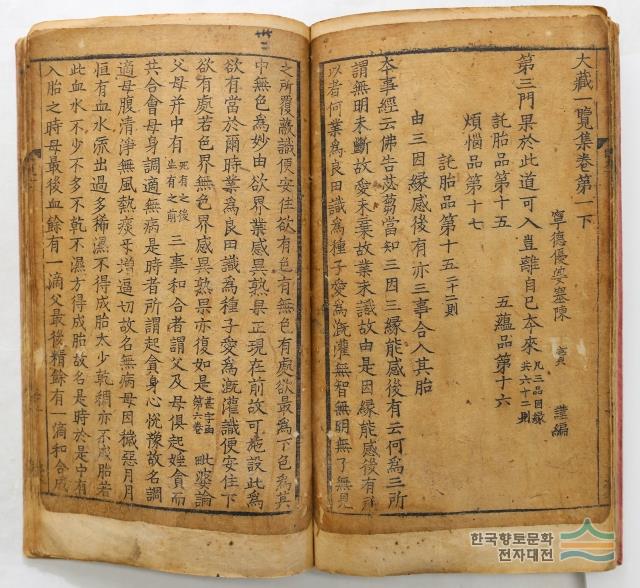 大藏一覽集卷第一下
寧德優婆塞陳 實 謹編
第三門果於此道可入豈離自己夲來凡三品因緣共六十二則
託胎品第十五 五蘊品第十六
煩惱品第十七
託胎品第十五二十二則
由三因緣感後有亦三事合入其胎
夲事經云佛告苾蒭當知三因三緣能感後有云何爲三所
謂無明未斷故愛未棄故業未識故由是因緣能感後有所
以者何業爲良田識爲種子愛爲溉灌無智無明無了無見
之所覆蔽識便安住欲有色有無色有處欲最爲下色爲其
中無色爲妙由欲界業感異熟果正現在前故可施設此爲
欲有當於爾時業爲良田識爲種子愛爲溉灌識便安住下
欲有處若色界無色界感異熟果亦復如是甚字函第六卷 毗婆論
父母并中有死有之後生有之前三事和合者謂父及母俱起婬貪而
共合會母身調適無病是時者所謂起貪身心悅豫故名調
適母腹清淨無風熱痰 增逼切故名無病母因穢惡月月
恒有血水派出過多稀濕不得成胎太少乾稠亦不成胎若
此血水不少不多不乾不濕方得成胎故名是時於是中有
入胎之時母最後血餘有一滴父最後精餘有一滴和合成
한국향토문화
전자대전